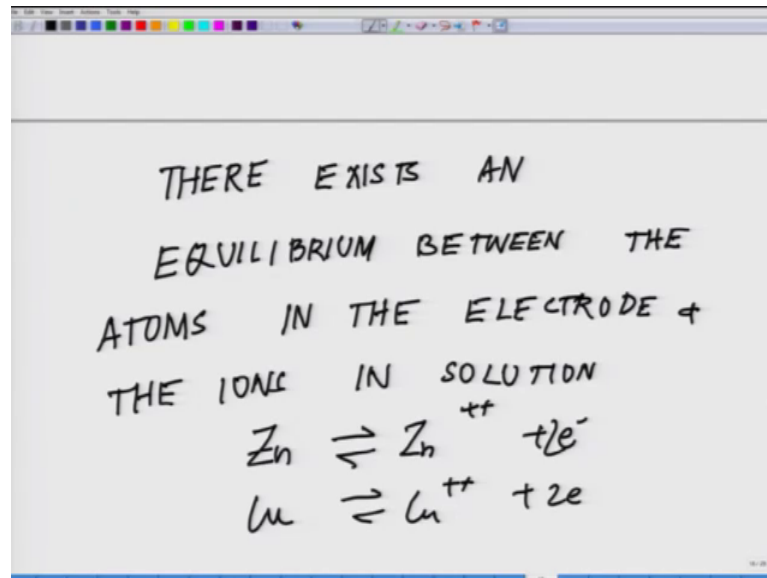 THERE EXISTS AN
EQUILIBRIUM BETWEEN THE
ATOMS IN THE ELECTRODE &
THE IONS IN SOLUTION
Zn ⇌ Zn⁺⁺ + 2e⁻
Cu ⇌ Cu⁺⁺ + 2e